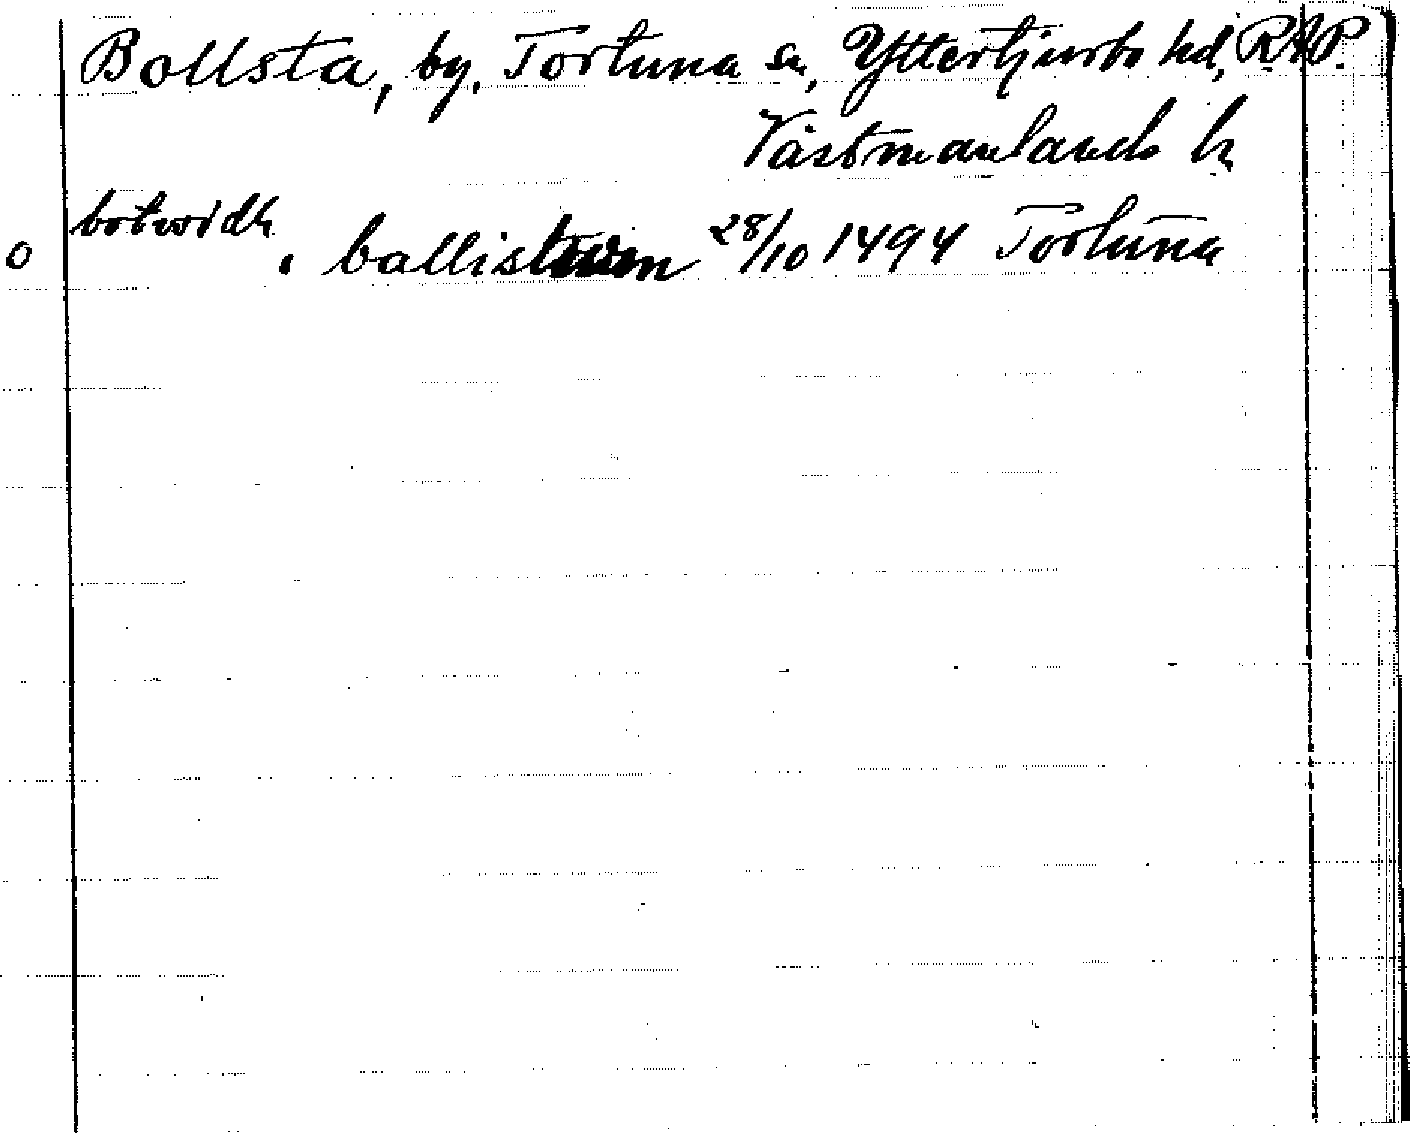 Bollsta, by, Tortuna sn, Yttertjurbo hd, RAP.
Västmanlands ln
botwidh
o i ballistum 28/10 1494 Tortuna